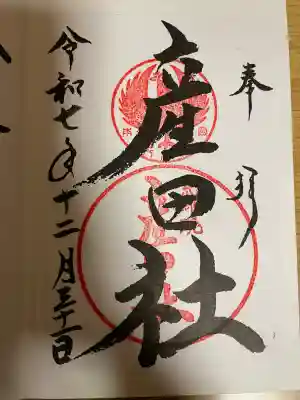 奉拝
産田社
令和七年十二月三十一日